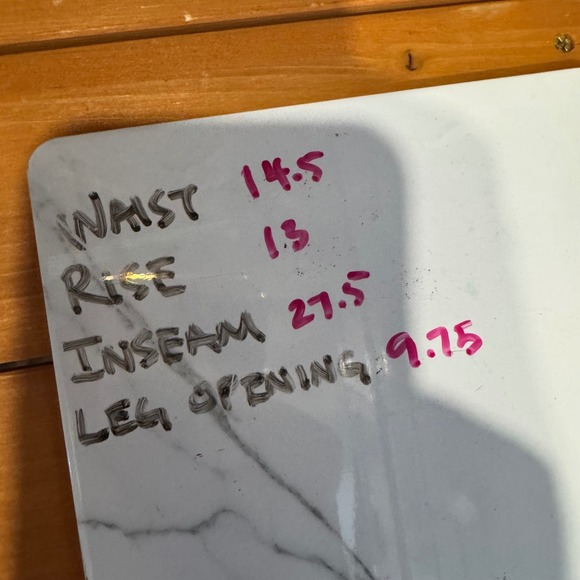 WAIST 14.5
RISE 13
INSEAM 27.5
LEG OPENING 9.75